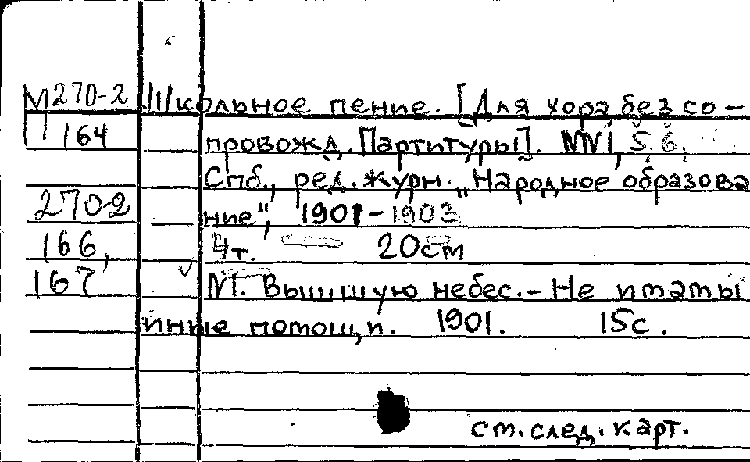 М 270-2 Школьное пение. [Для хора без со-
164 провожд. Партитуры]. №№1, 5, 6,
Спб., ред. журн. „Народное образова
270-2 ние", 1901-1903
166, 4 т. 20 см
167 №1. Вышшую небес.- Не имамы
иные помощи. 1901. 15 с.
см. след. карт.